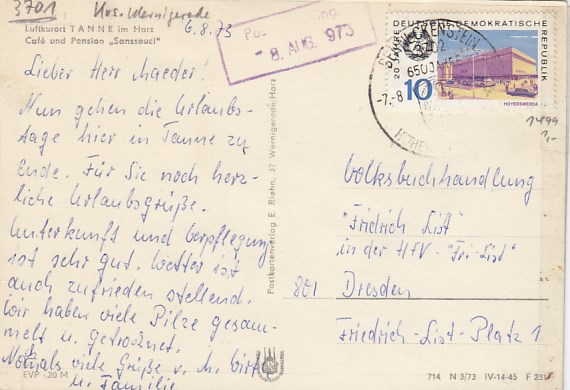 3701 Krs. Wernigerode
Luftkurort TANNE im Harz
Café und Pension „Sanssouci"
6.8.73
- 8. AUG. 1973
20 JAHRE DEUTSCHE DEMOKRATISCHE REPUBLIK
10
HOYERSWERDA
1499
1,-
Lieber Herr Maeder!
Nun gehen die Urlaubs-
tage hier in Tanne zu
Ende. Für Sie noch herz-
liche Urlaubsgrüße.
Unterkunft und Verpflegung
ist sehr gut. Wetter ist
auch zufrieden stellend.
Wir haben viele Pilze gesam-
melt u. getrocknet.
Nochmals viele Grüße v.
u. Familie
EVP -,20 M
Postkartenverlag E. Riehn, 37 Wernigerode/Harz
Volksbuchhandlung
"Friedrich List"
in der HfV - "Fri-List"
801 Dresden
Friedrich-List-Platz 1
714 N 3/73 IV-14-45 F 231